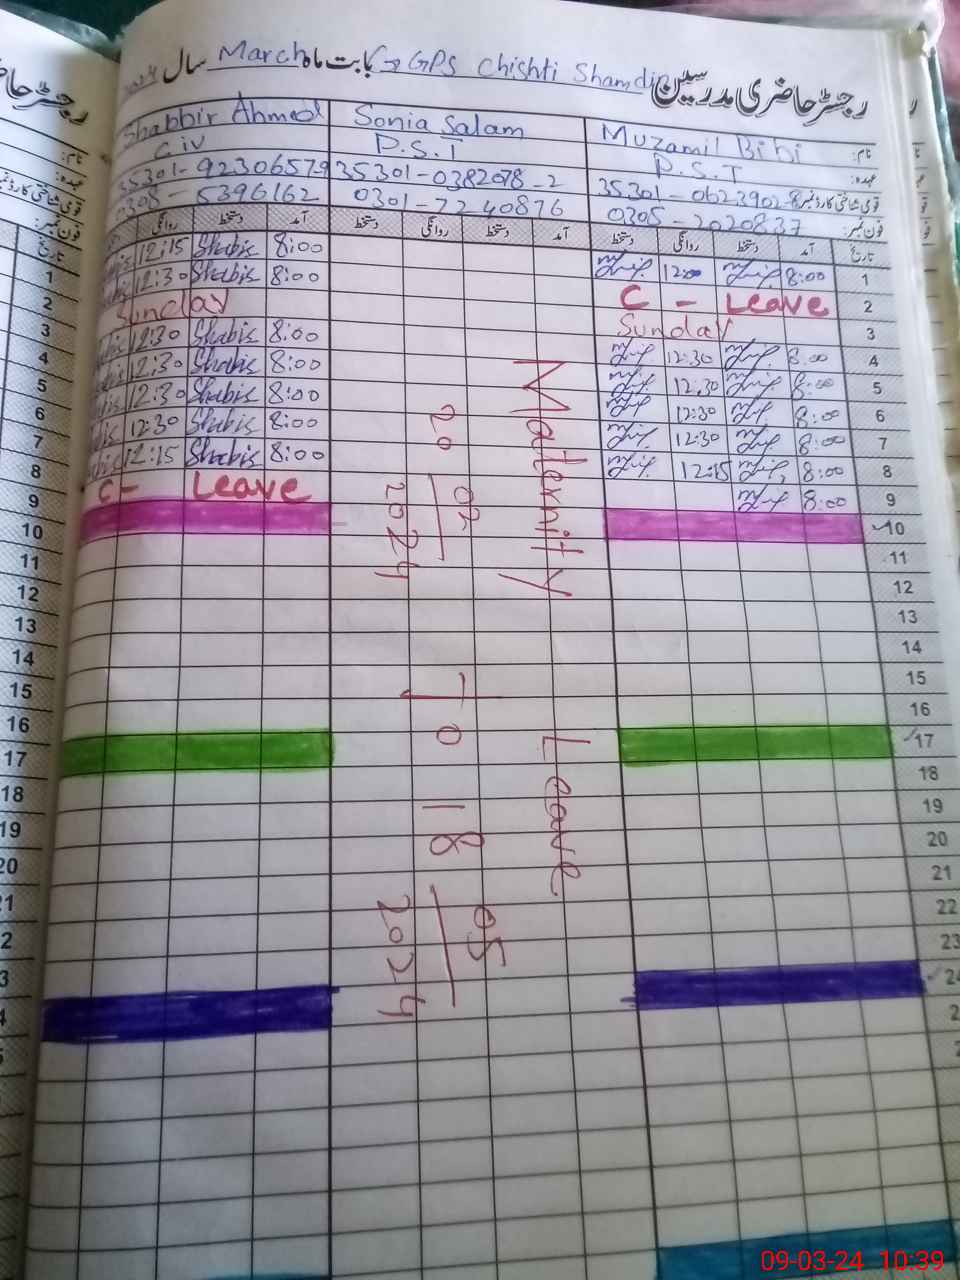 رجسٹر حاضری مدرسین GPS Chishti Shamdin بابت ماہ March سال
نام: Muzamil Bibi Sonia Salam Shabbir Ahmed
عہدہ: P.S.T P.S.T C iv
قومی شناختی کارڈ نمبر 35301-0623902-8 35301-0382078-2 35301-9230657-9
فون نمبر: 0305-2020837 0301-7240876 0308-5396162
تاریخ آمد دستخط روانگی دستخط آمد دستخط روانگی دستخط آمد دستخط روانگی
1 8:00 12:00 8:00 Shabir 12:15
2 C - Leave 8:00 Shabir 12:30
3 Sunday Sunday
4 8:00 12:30 8:00 Shabir 12:30
5 8:00 12:30 8:00 Shabir 12:30
6 8:00 12:30 8:00 Shabir 12:30
7 8:00 12:30 8:00 Shabir 12:30
8 8:00 12:15 8:00 Shabir 12:15
9 8:00 C - Leave
10
11
12
13
14
15
16
17
18
19
20
21
22
23
24
Maternity Leave
20/02/2024 To 18/05/2024
09-03-24 10:39